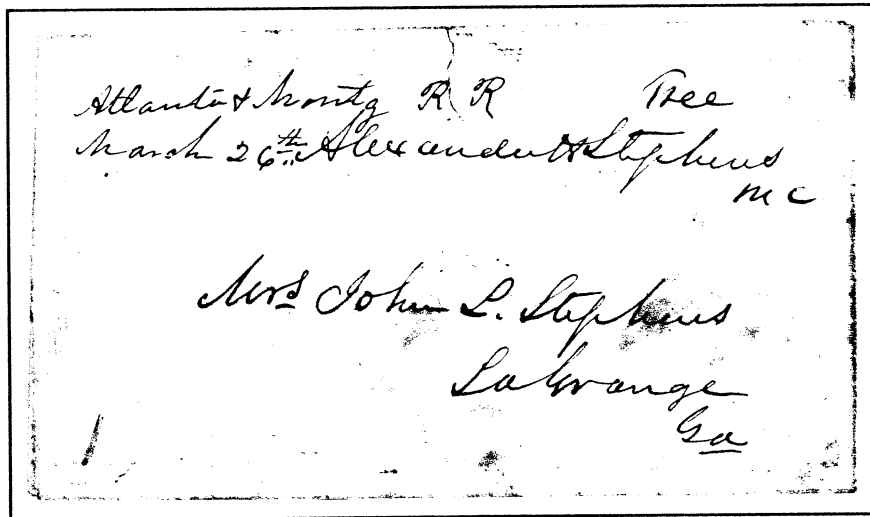 Atlanta & Montg R R Free
March 26th Alexander H Stephens
M C
Mrs John L. Stephens
LaGrange
Ga